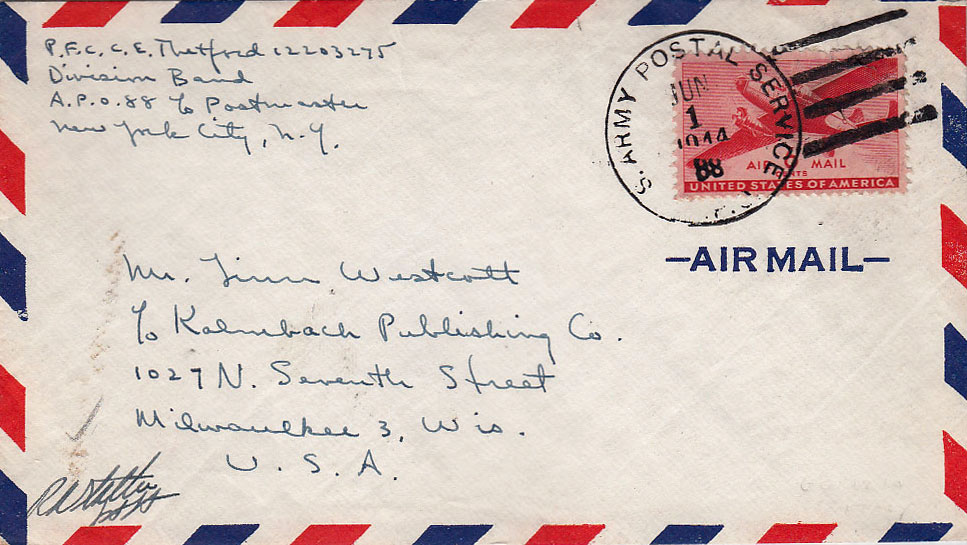 P.F.C. C.E. Thetford 12203275
Division Band
A.P.O. 88 c/o Postmaster
New York City, N.Y.
S. ARMY POSTAL SERVICE
JUN
1
1944
88
AIR MAIL
UNITED STATES OF AMERICA
—AIR MAIL—
Mr. Linn Westcott
c/o Kalmbach Publishing Co.
1027 N. Seventh Street
Milwaukee 3, Wis.
U. S. A.